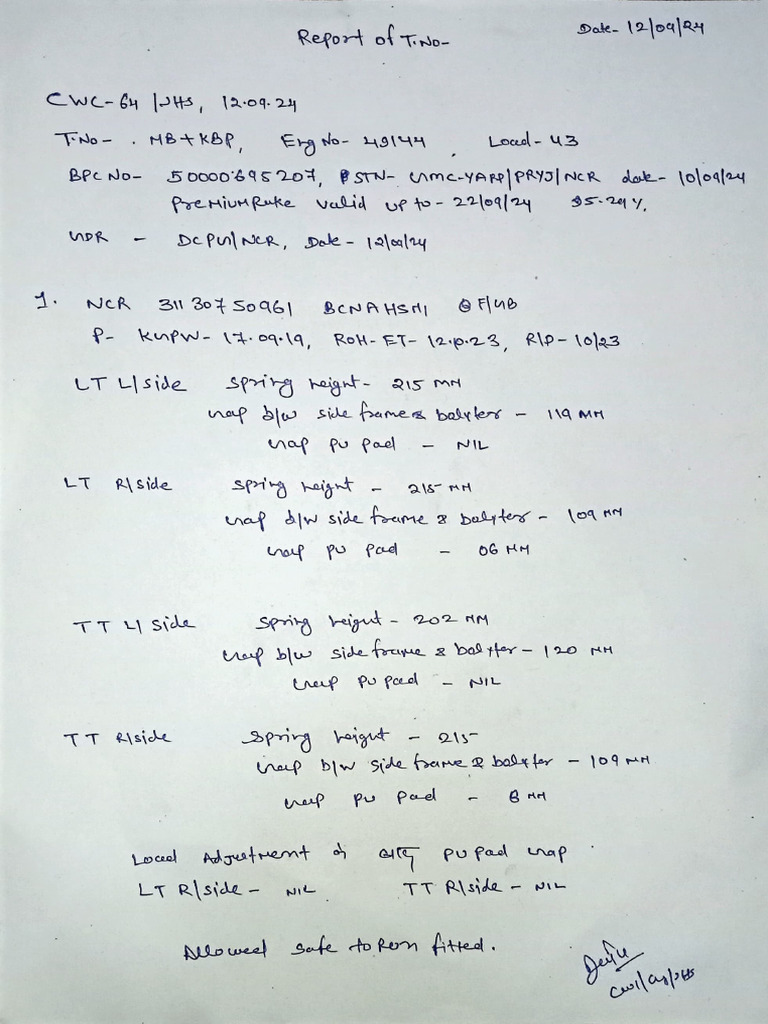 Report of T.No-
Date- 12/09/24
CWC-64 /JHS, 12.09.24
T.No- . MB+KBP, Eng No- 49144, Load- 43
BPC No- 50000695207, STN- GMC-YARD/PRYJ/NCR date- 10/09/24
Premium Rake valid up to- 22/09/24 95.29%
GDR - DCPG/NCR, Date- 12/09/24
1. NCR 31130750961 BCNAHSM1 @ F/GB
P- KGPW- 17.09.19, ROH- ET- 12.10.23, R/D- 10/23
LT L/side spring height- 215 MM
Gap b/w side frame & bolster - 119 MM
Gap pu pad - NIL
LT R/side spring height - 215 MM
Gap b/w side frame & bolster - 109 MM
Gap pu pad - 06 MM
TT L/side spring height - 202 MM
Gap b/w side frame & bolster - 120 MM
Gap pu pad - NIL
TT R/side spring height - 215
Gap b/w side frame & bolster - 109 MM
Gap pu pad - 8 MM
Load Adjustment के बाद pu pad gap
LT R/side - NIL TT R/side - NIL
Allowed safe to Run fitted.